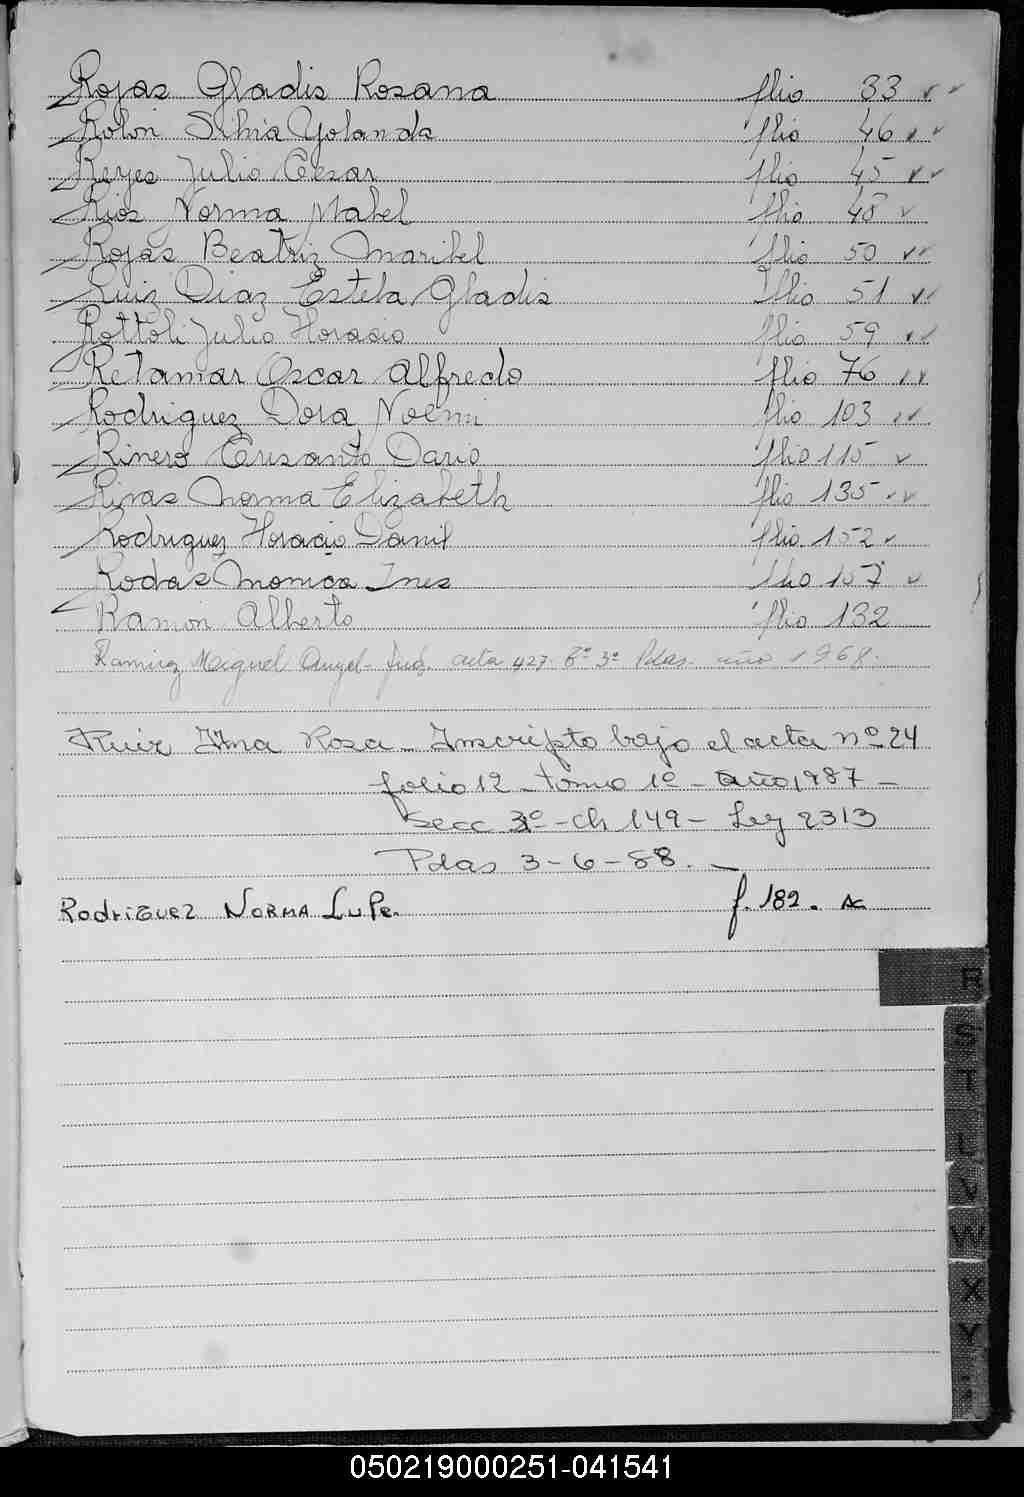 Rojas Gladis Rosana flio 33
Rolon Silvia Yolanda flio 46
Reyes Julio Cesar flio 45
Rios Norma Mabel flio 48
Rojas Beatriz Maribel flio 50
Ruiz Diaz Estela Gladis flio 51
Rottoli Julio Horacio flio 59
Retamar Oscar Alfredo flio 76
Rodriguez Dora Noemi flio 103
Rinero Crisanto Dario flio 115
Rivas Norma Elizabeth flio 135
Rodriguez Horacio Daniel flio 152
Rodas Monica Ines flio 157
Ramon Alberto flio 132
Ramirez Miguel Angel acta 427 3º Pdas. año 1968.
Ruiz Rosa - Inscripto bajo el acta nº 24
folio 12 - tomo 1º - año 1987 -
Secc 3º - ch 149 - Ley 2313
Pdas 3-6-88. -
Rodriguez Norma Lupe. f. 182.
R
S
T
V
W
X
Y
050219000251-041541